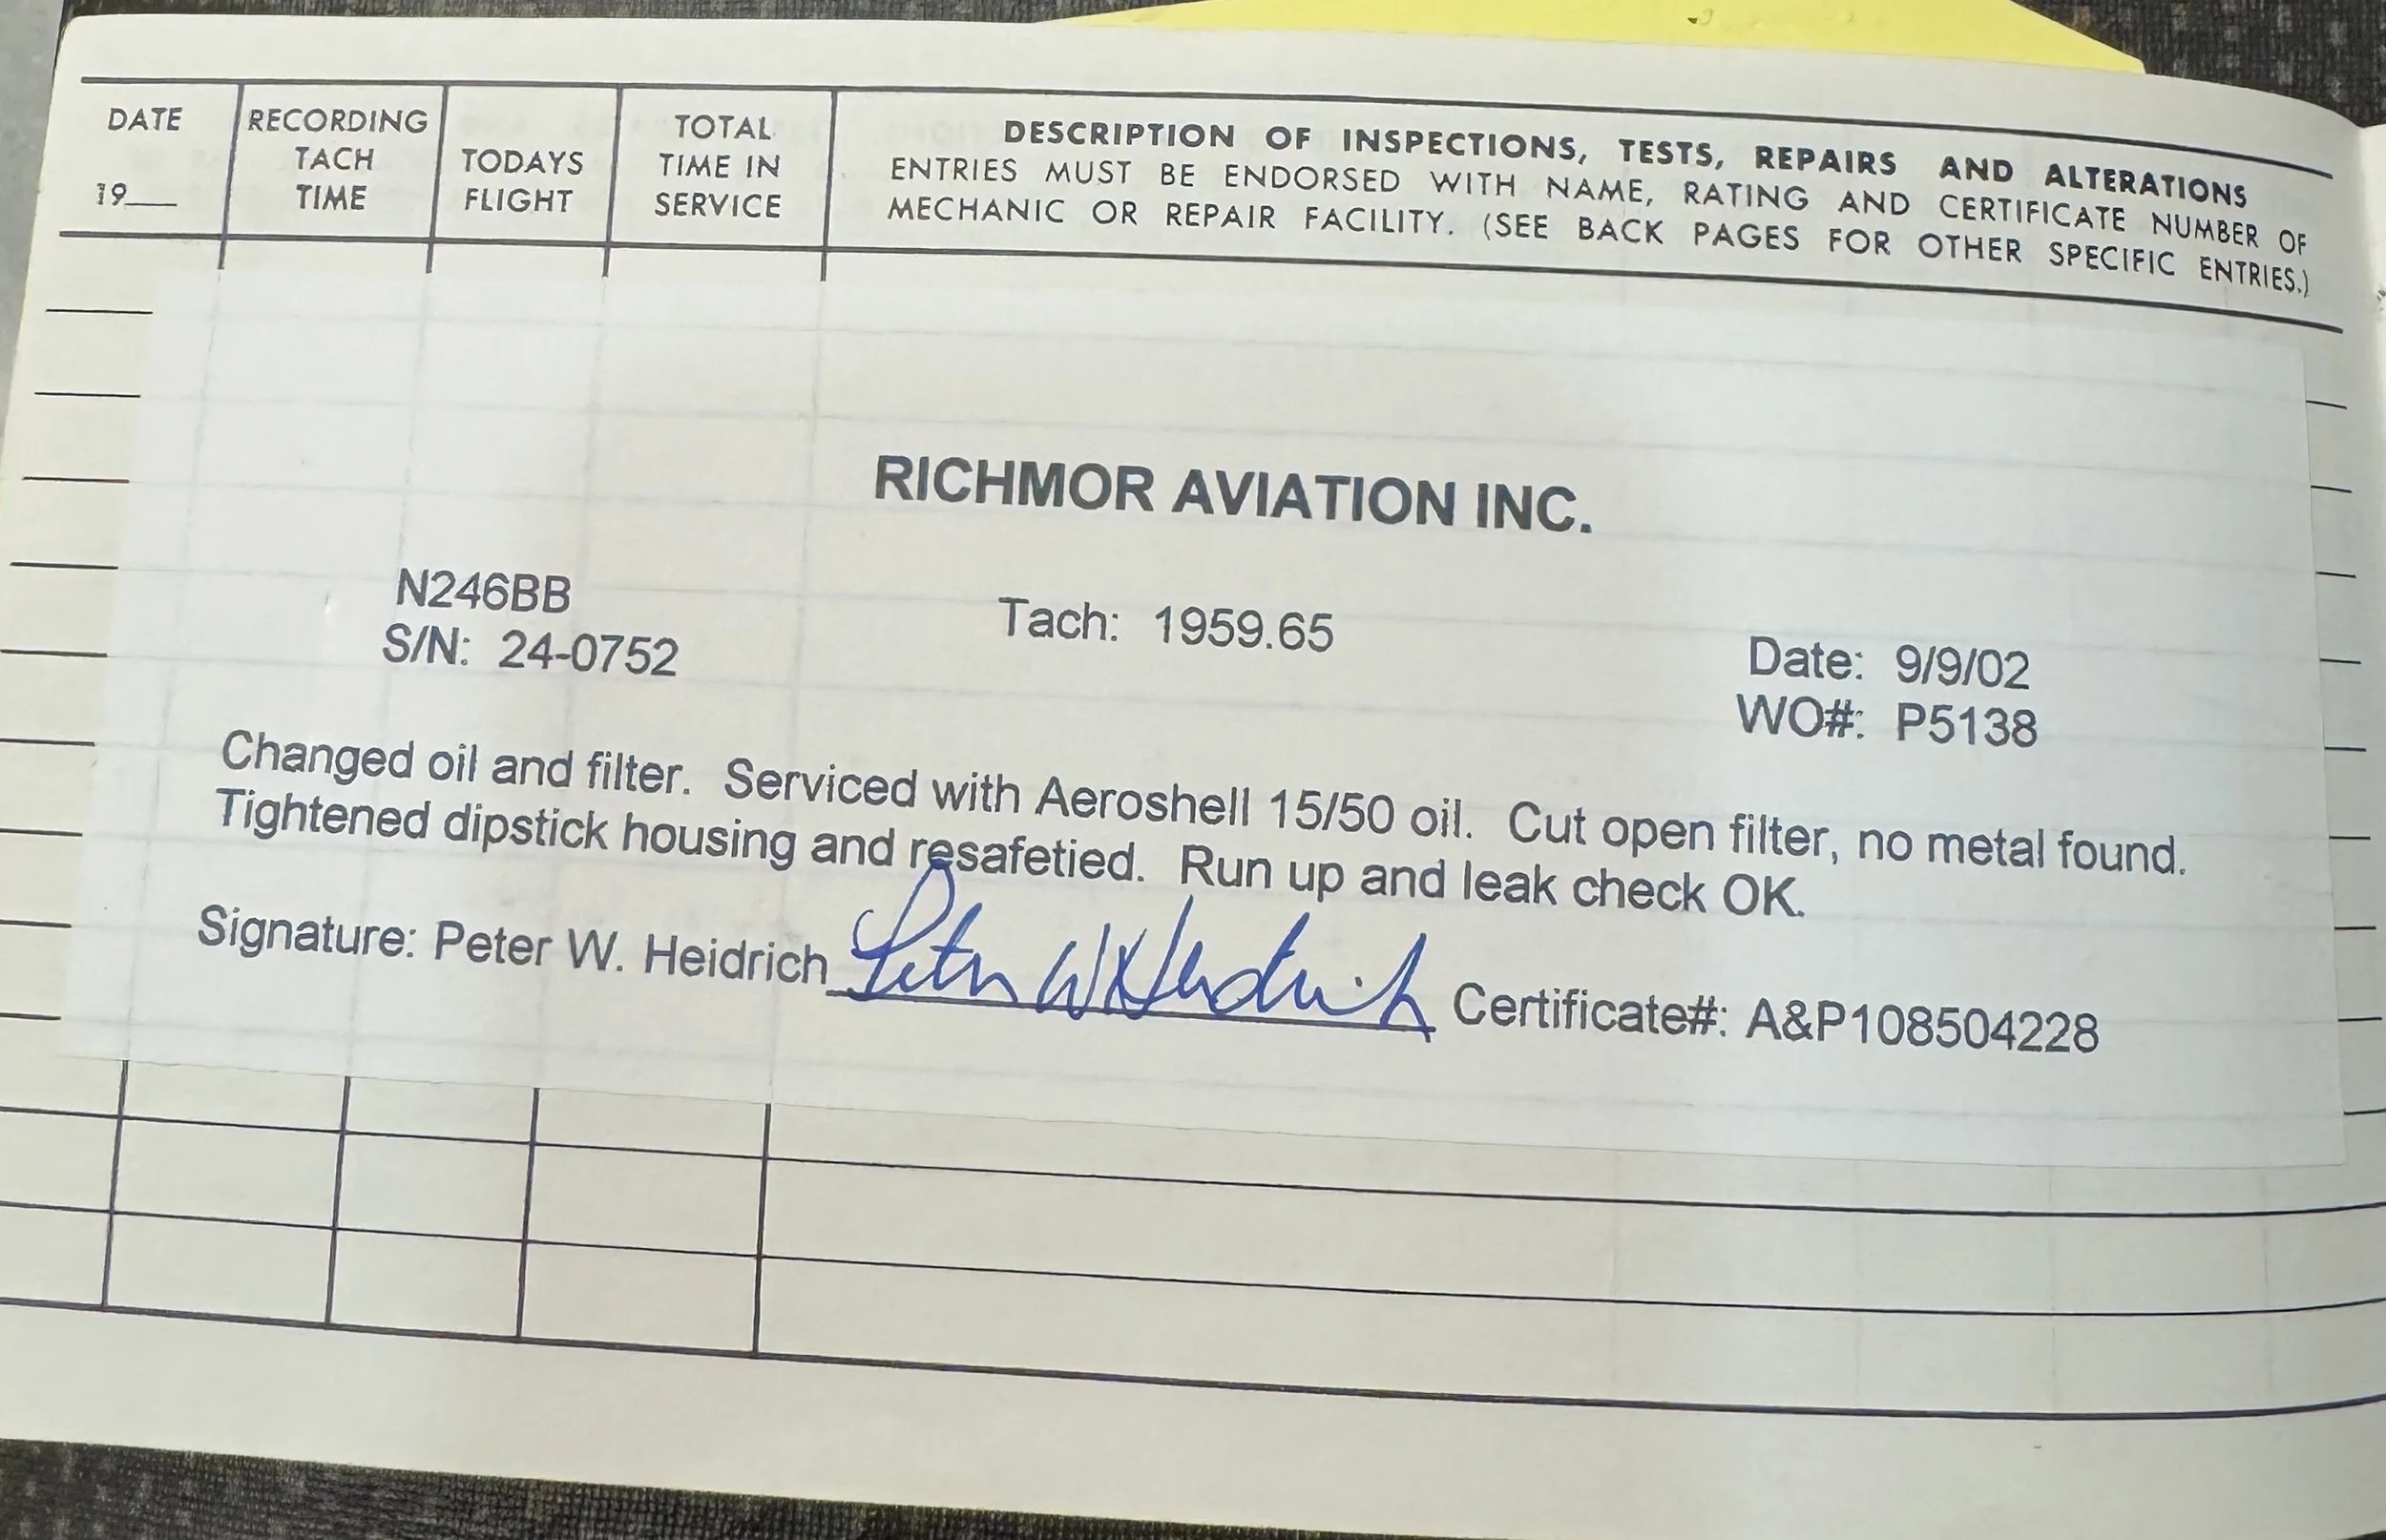 DATE
19___
RECORDING
TACH
TIME
TODAYS
FLIGHT
TOTAL
TIME IN
SERVICE
DESCRIPTION OF INSPECTIONS, TESTS, REPAIRS AND ALTERATIONS
ENTRIES MUST BE ENDORSED WITH NAME, RATING AND CERTIFICATE NUMBER OF
MECHANIC OR REPAIR FACILITY. (SEE BACK PAGES FOR OTHER SPECIFIC ENTRIES.)
RICHMOR AVIATION INC.
N246BB
S/N: 24-0752
Tach: 1959.65
Date: 9/9/02
WO#: P5138
Changed oil and filter. Serviced with Aeroshell 15/50 oil. Cut open filter, no metal found.
Tightened dipstick housing and resafetied. Run up and leak check OK.
Signature: Peter W. Heidrich Peter W Heidrich Certificate#: A&P108504228